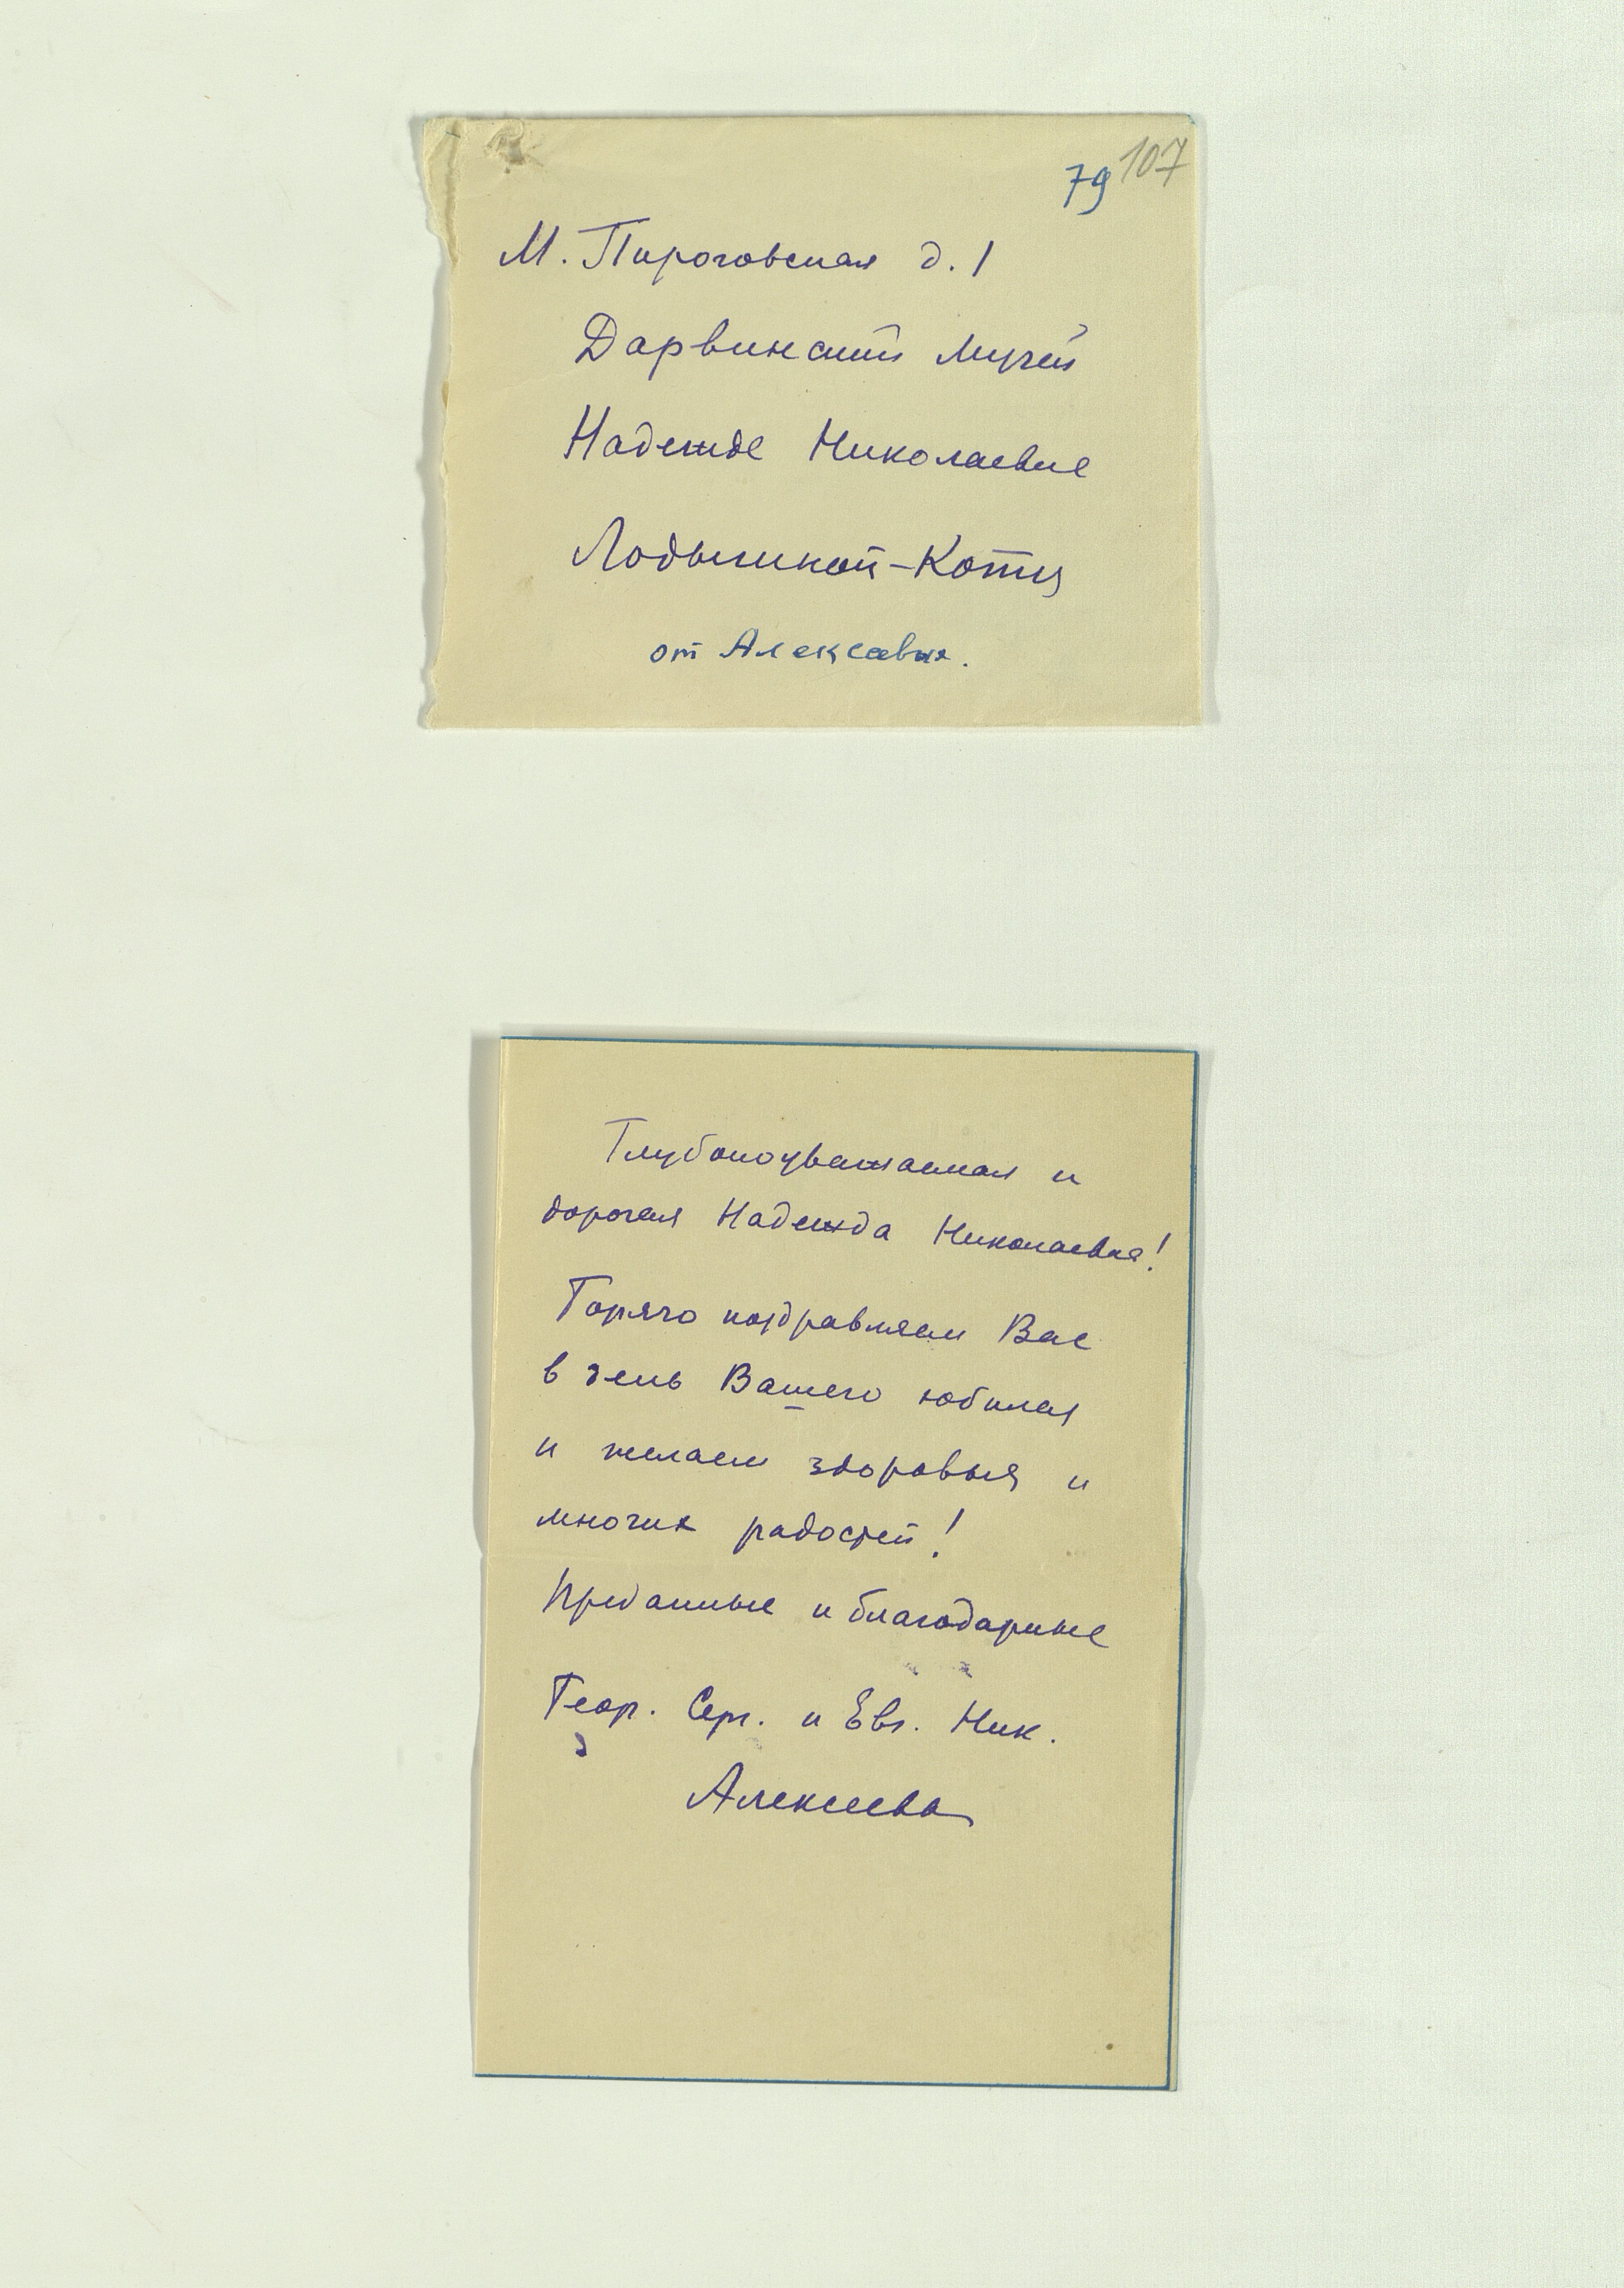 79 107
М. Пироговская д. 1
Дарвинский Музей
Надежде Николаевне
Лодыгиной-Котс
от Алексеевых.
Глубокоуважаемая и
дорогая Надежда Николаевна!
Горячо поздравляем Вас
в день Вашего юбилея
и желаем здоровья и
многих радостей!
Преданные и благодарные
Геор. Серг. и Евг. Ник.
Алексеевы